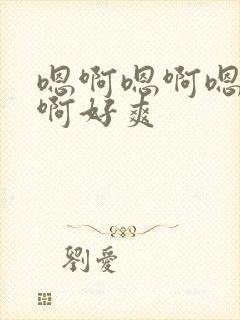 嗯啊嗯啊嗯
啊好爽
劉愛